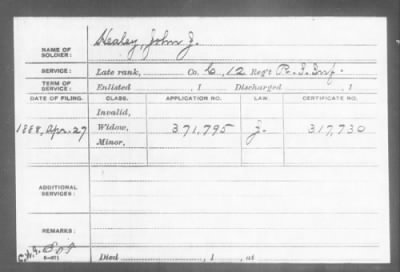 NAME OF SOLDIER: Healey, John J.
SERVICE: Late rank, Co. C, 12 Reg't R. I. Inf.
TERM OF SERVICE: Enlisted , 1 Discharged , 1
DATE OF FILING. CLASS. APPLICATION NO. LAW. CERTIFICATE NO.
Invalid,
1888, Apr. 27 Widow, 371,795 J. 317,730
Minor,
ADDITIONAL SERVICES:
REMARKS:
Died , 1 , at